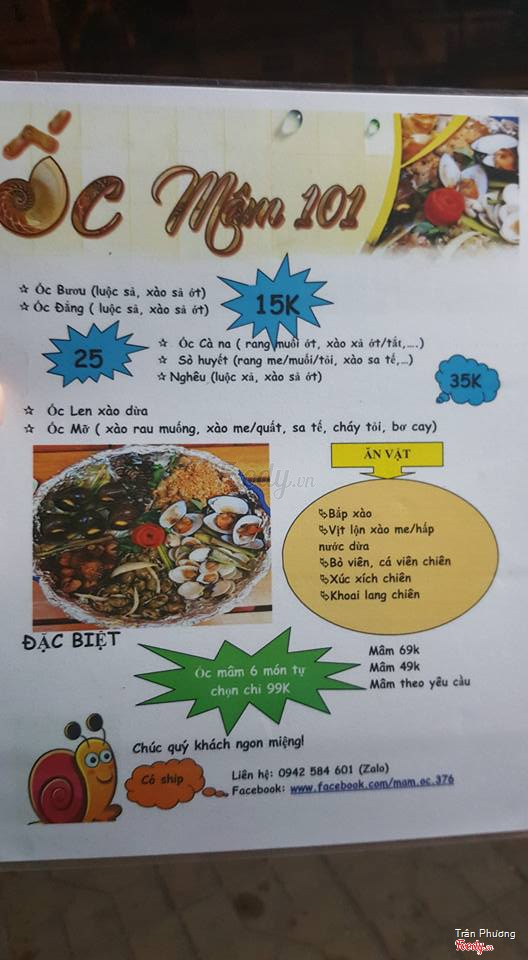 Ốc Mâm 101
☆ Ốc Bươu (luộc sả, xào sả ớt)
☆ Ốc Đắng ( luộc sả, xào sả ớt)
15K
25
☆ Ốc Cà na ( rang muối ớt, xào xả ớt/tắt,....)
☆ Sò huyết (rang me/muối/tỏi, xào sa tế,…)
☆ Nghêu (luộc xả, xào sả ớt)
35K
☆ Ốc Len xào dừa
☆ Ốc Mỡ ( xào rau muống, xào me/quất, sa tế, cháy tỏi, bơ cay)
ĂN VẶT
Bắp xào
Vịt lộn xào me/hấp
nước dừa
Bò viên, cá viên chiên
Xúc xích chiên
Khoai lang chiên
ĐẶC BIỆT
Ốc mâm 6 món tự
chọn chỉ 99K
Mâm 69k
Mâm 49k
Mâm theo yêu cầu
Chúc quý khách ngon miệng!
Có ship
Liên hệ: 0942 584 601 (Zalo)
Facebook: www.facebook.com/mam.oc.376
Trần Phương
Foody.vn